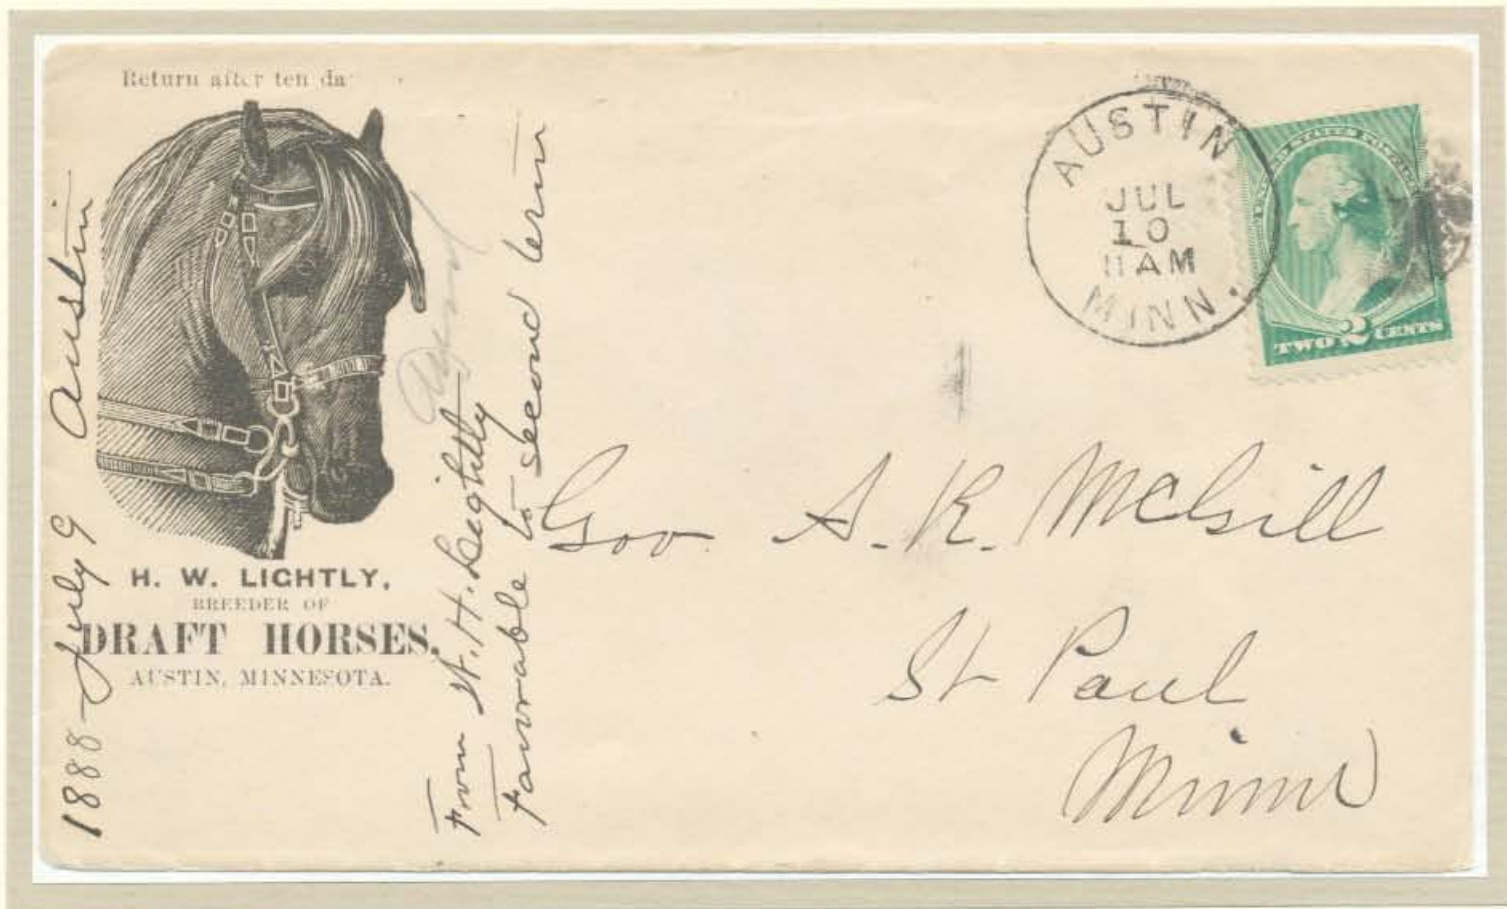 Return after ten da
H. W. LIGHTLY,
BREEDER OF
DRAFT HORSES.
AUSTIN, MINNESOTA.
1888 - July 9 Austin
From H. Leightly
Favorable to second term
AUSTIN
JUL
10
11 AM
MINN.
UNITED STATES POSTAGE
TWO 2 CENTS
Gov. A. R. McGill
St Paul
Minn